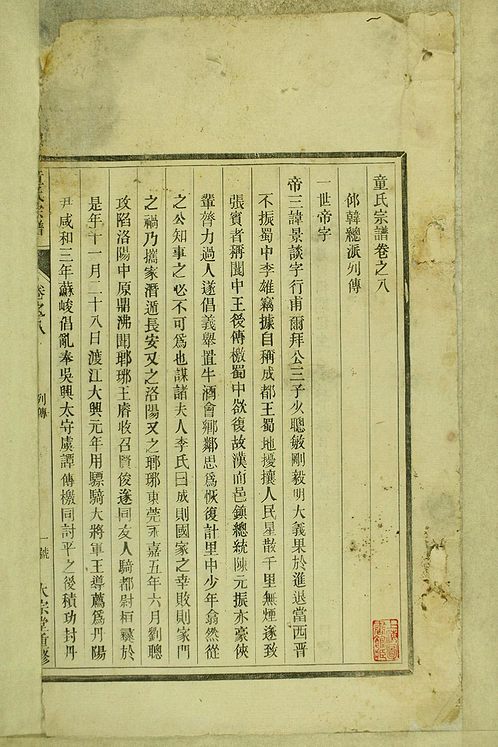 童氏宗譜卷之八
邻韓總派列傳
一世帝字
帝三諱景談字行甫爾拜公三子少聰敏剛毅明大義果於進退當西晉
不振蜀中李雄竊據自稱成都王蜀地擾攘人民星散千里無煙遂致
張賓者稱閬中王後傳檄蜀中欲復故漢而邑鎮總統陳元振亦豪俠
輩膂力過人遂倡義舉置牛酒會鄉鄰思爲恢復計里中少年翕然從
之公知事之必不可爲也謀諸夫人李氏曰成則國家之幸敗則家門
之禍乃攜家潛遁長安又之洛陽又之瑯琊東莞永嘉五年六月劉聰
攻陷洛陽中原鼎沸聞瑯琊王睿收召賢俊遂同友人騎都尉桓彝於
是年十一月二十八日渡江大興元年用驃騎大將軍王導薦爲丹陽
尹咸和三年蘇峻倡亂奉吳興太守虞譚傳檄同討平之後積功封丹
宗譜
卷之八
列傳
一號
大宗堂重修